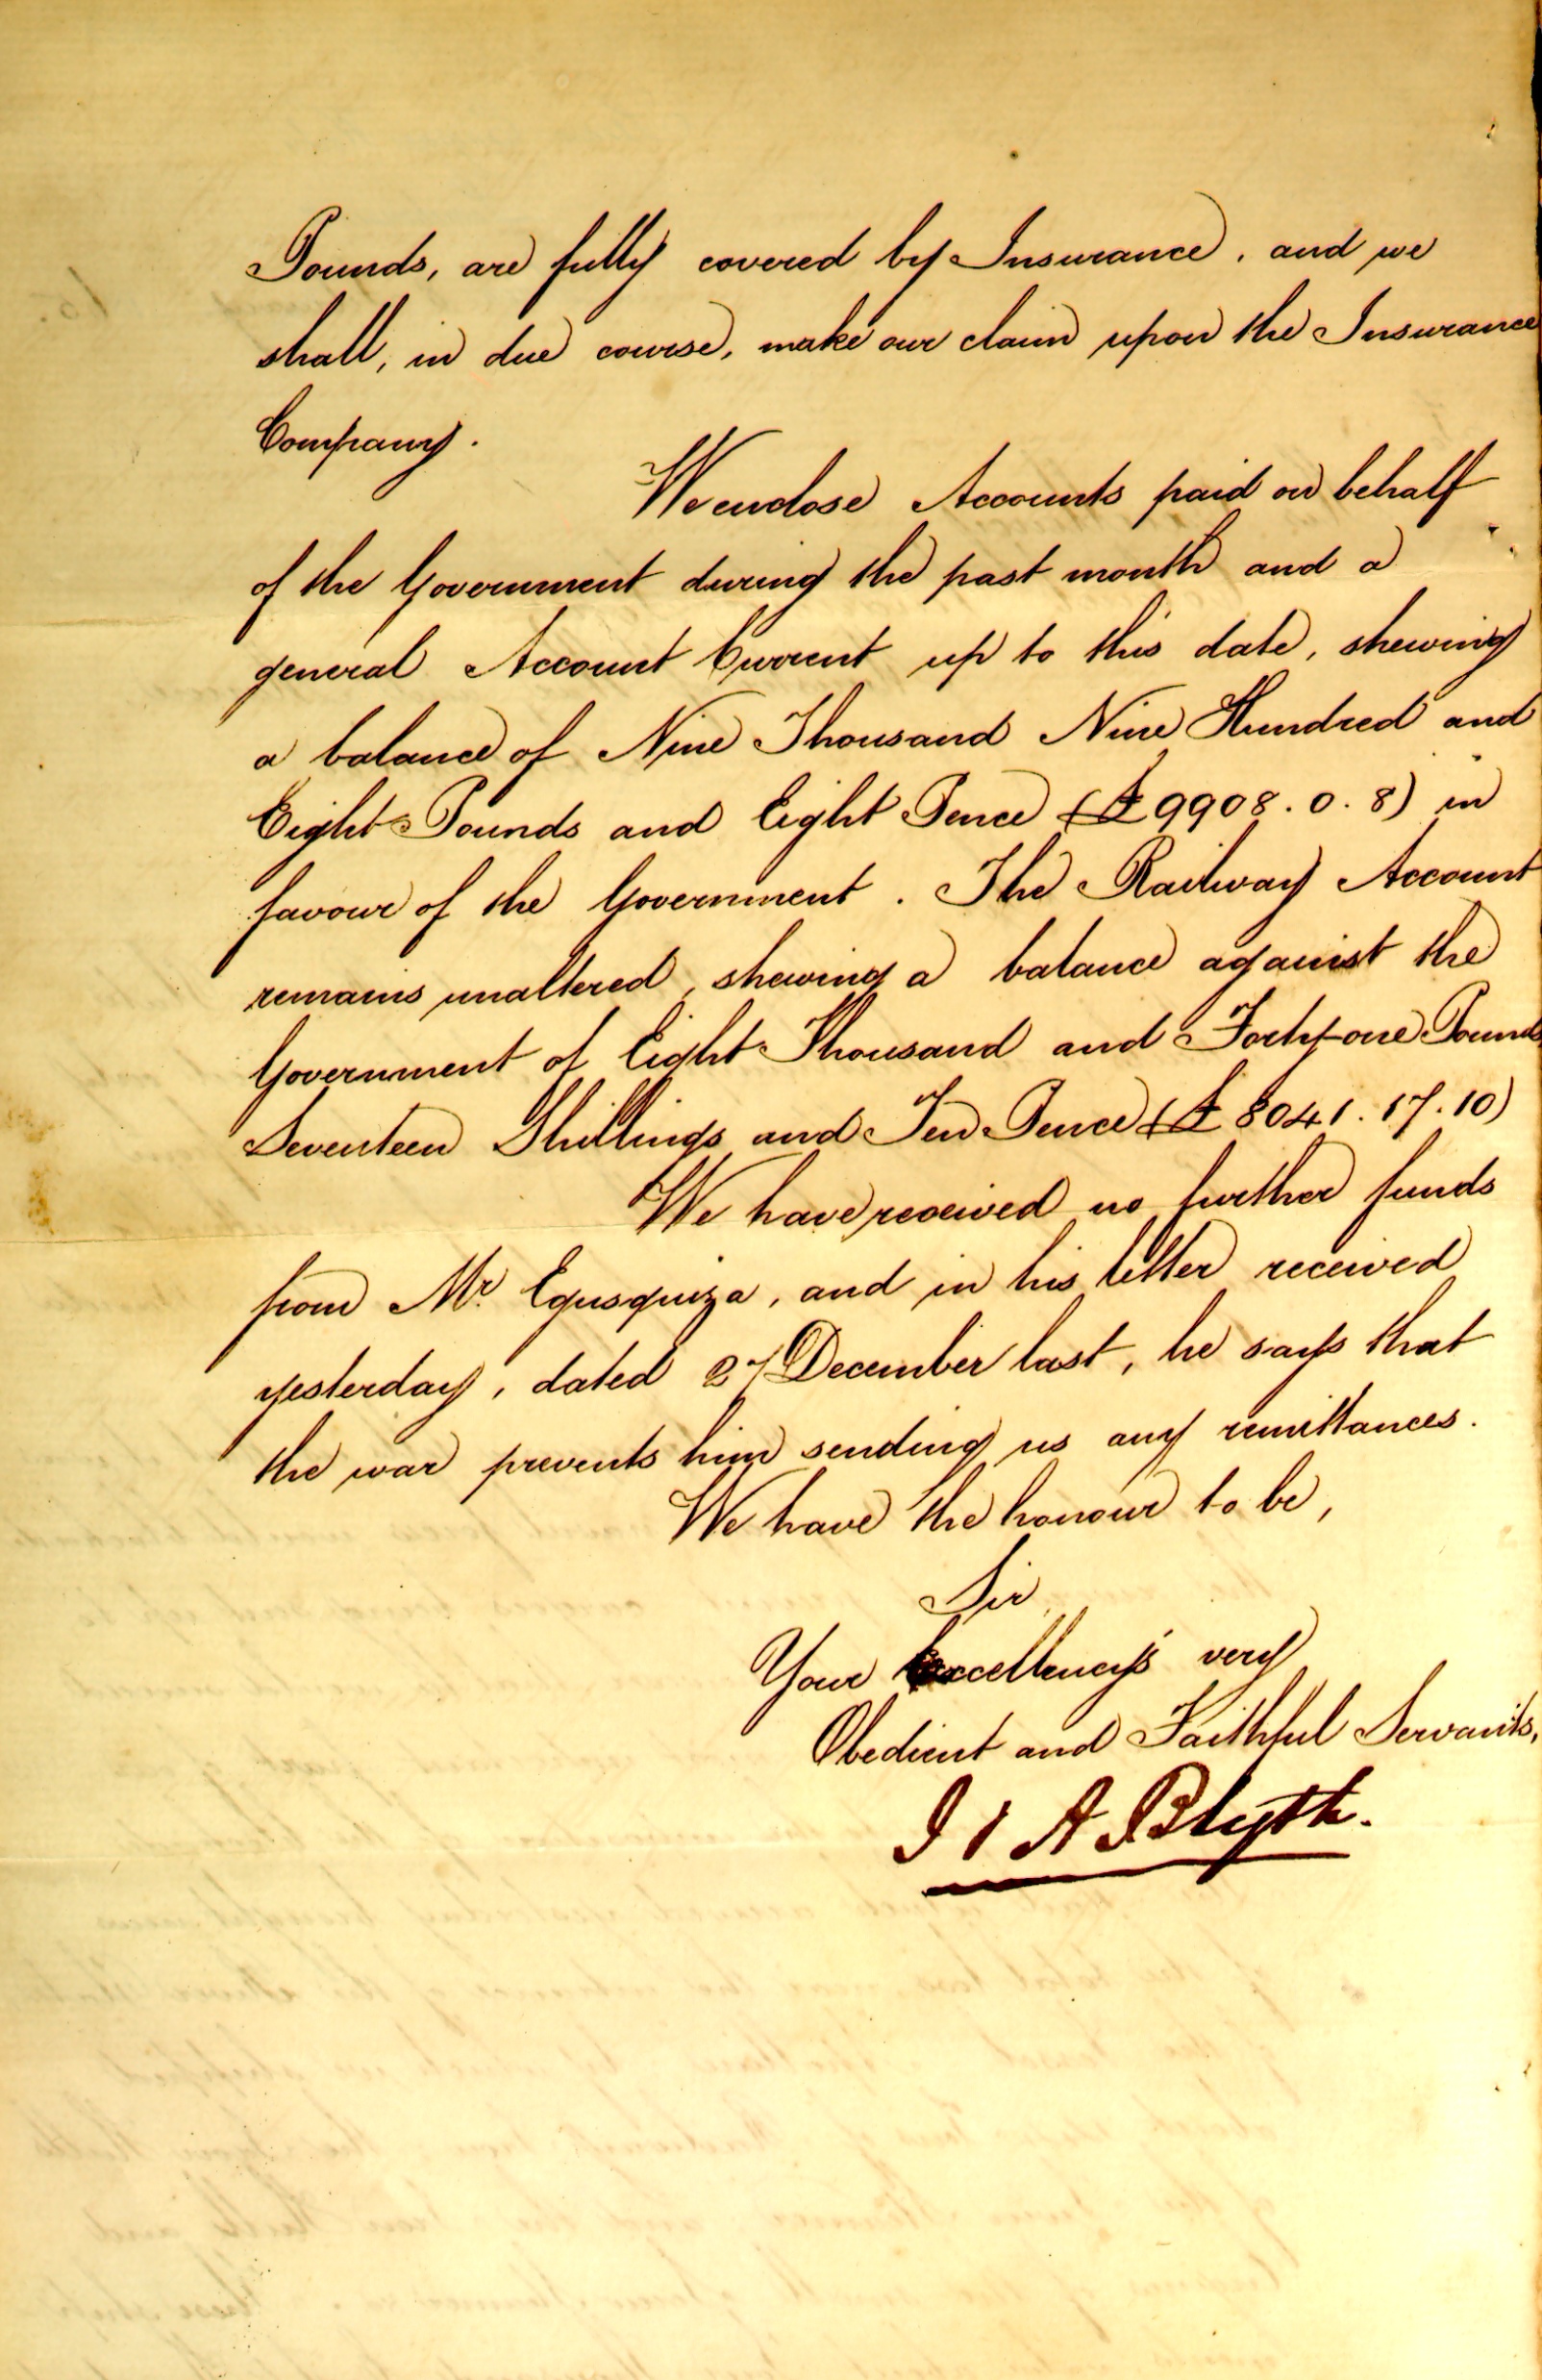 Pounds, are fully covered by Insurance, and we
shall, in due course, make our claim upon the Insurance
Company.
We enclose Accounts paid on behalf
of the Government during the past month and a
general Account Current up to this date, shewing
a balance of Nine Thousand Nine Hundred and
Eight Pounds and Eight Pence (£9908.0.8) in
favour of the Government. The Railway Account
remains unaltered, shewing a balance against the
Government of Eight Thousand and Forty-one Pounds
Seventeen Shillings and Ten Pence (£8041.17.10)
We have received no further funds
from Mr Egusquiza, and in his letter received
yesterday, dated 27 December last, he says that
the war prevents him sending us any remittances.
We have the honour to be,
Sir
Your Excellency's very
Obedient and Faithful Servants,
J & A Blyth.